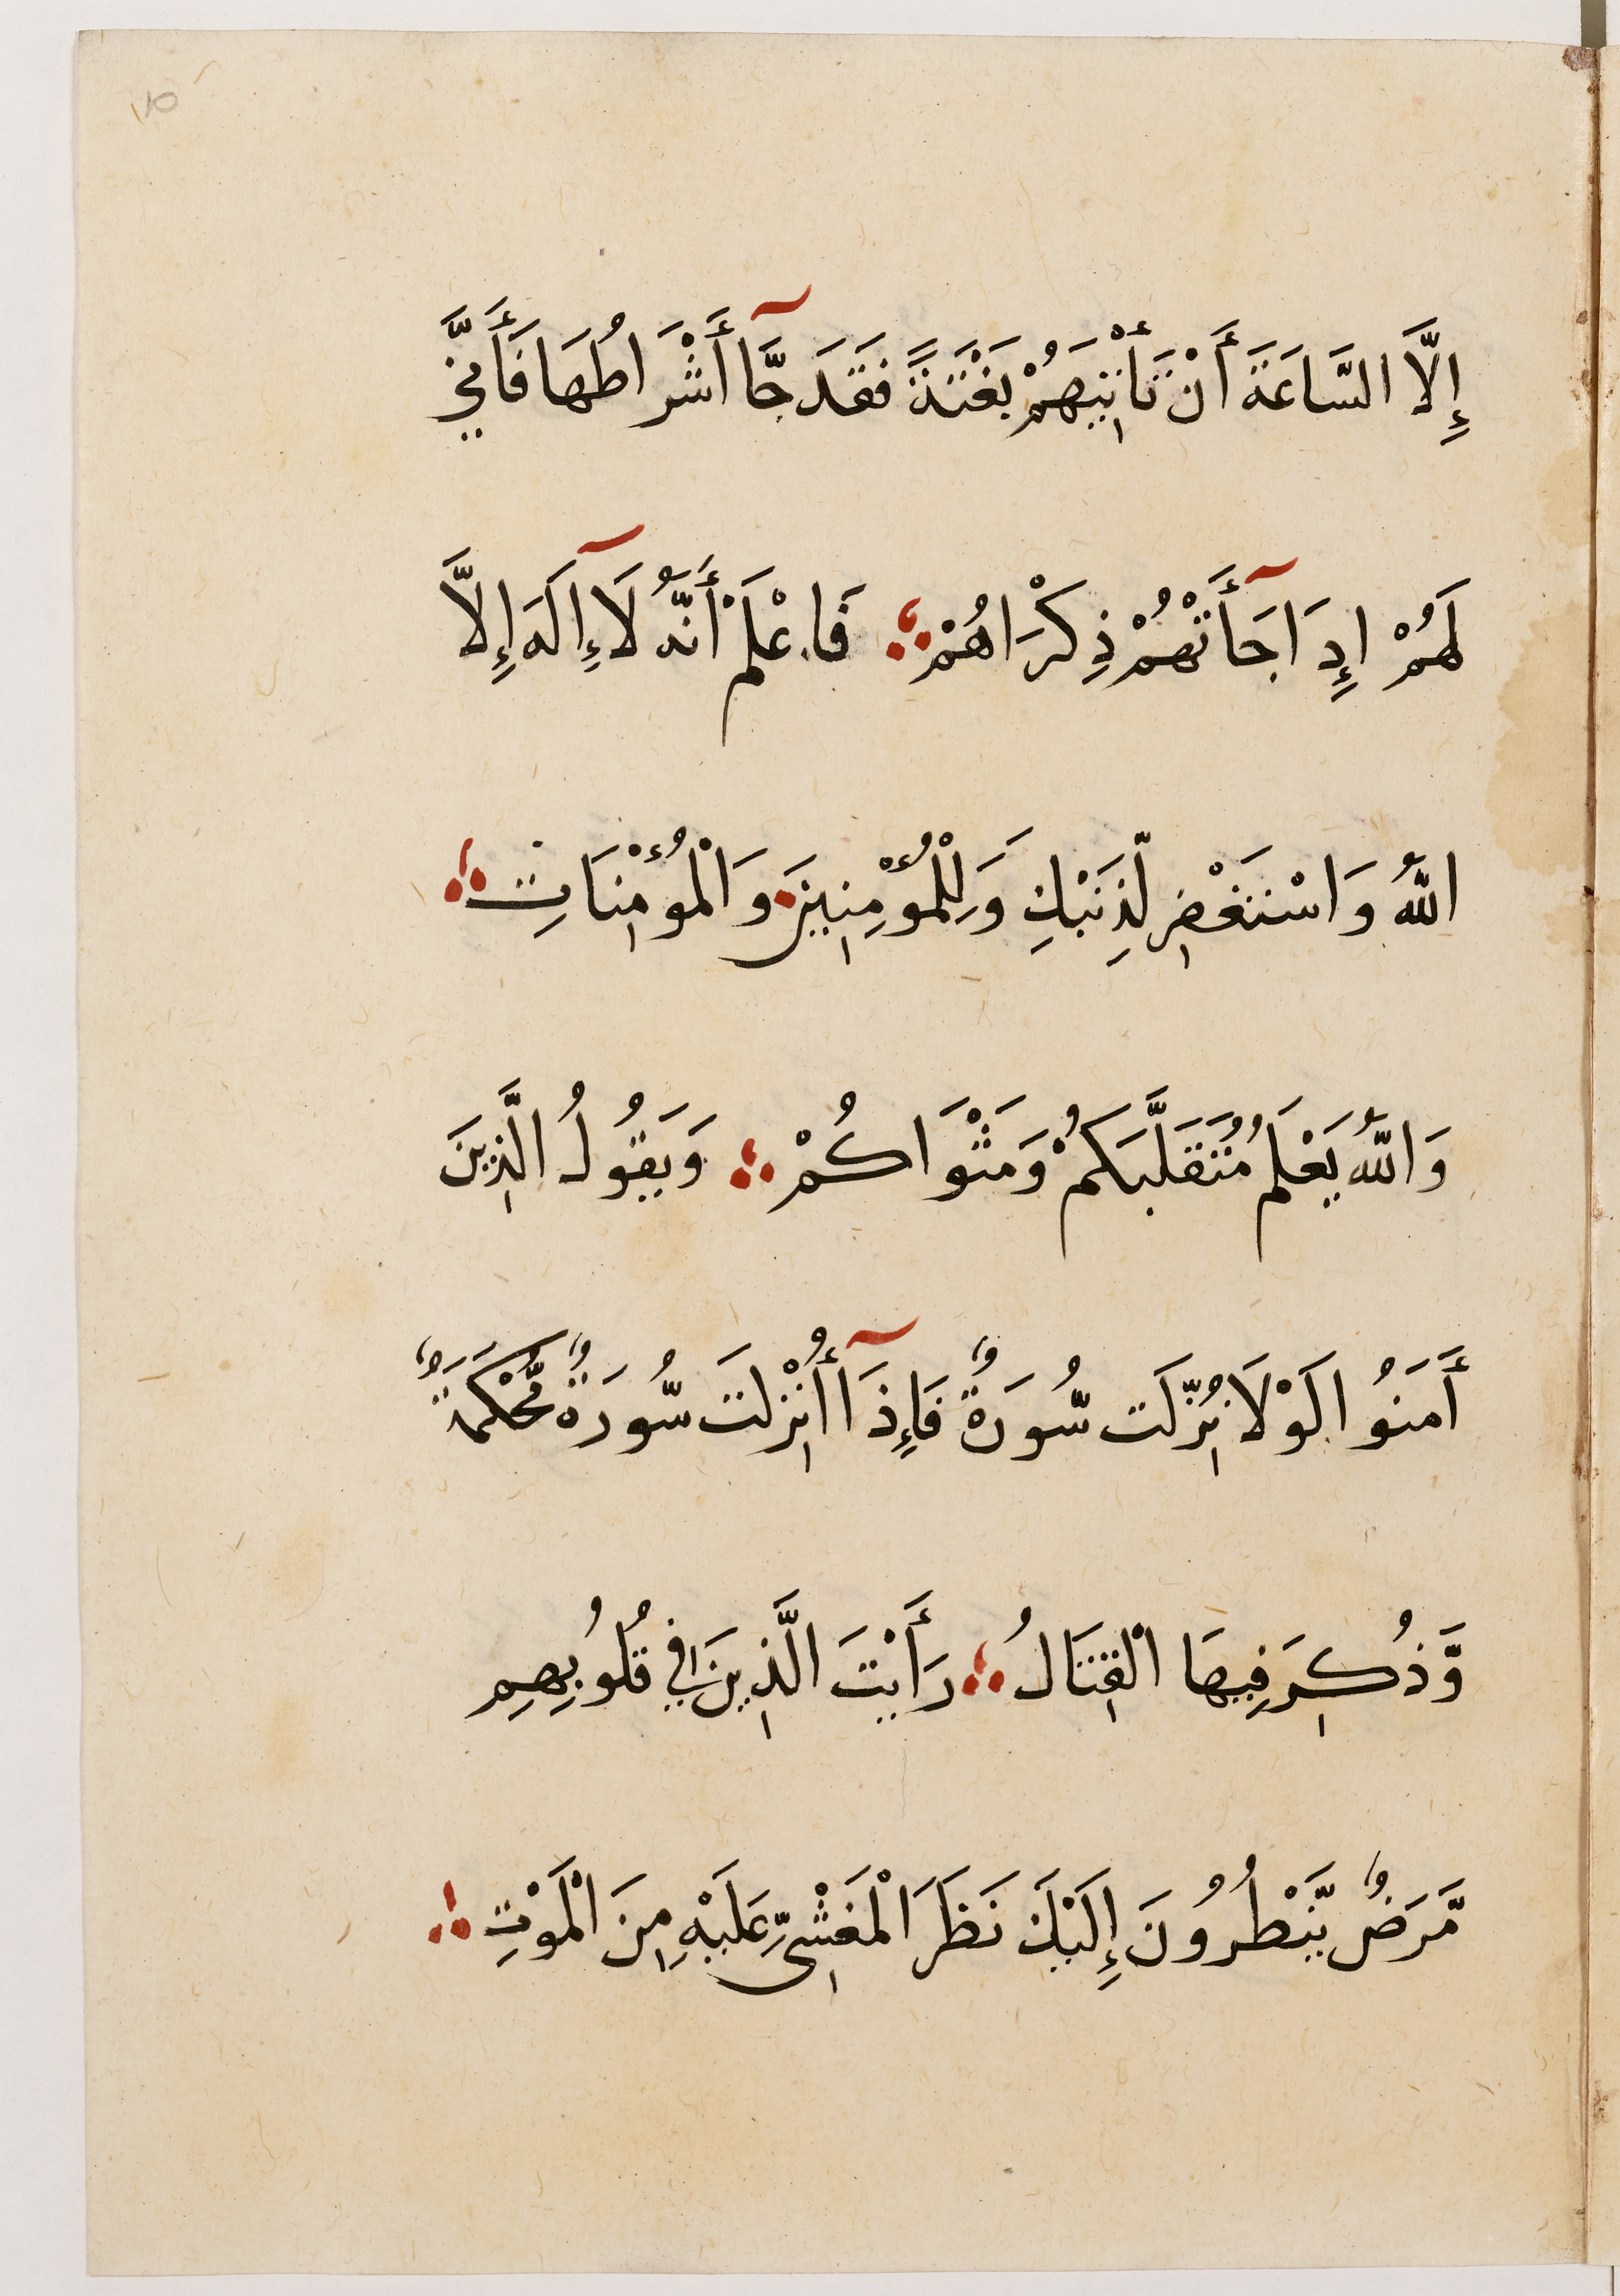 إِلَّا السَّاعَةَ أَنْ تَأْتِيَهُمْ بَغْتَةً فَقَدَ جَّآ أَشْرَاطُهَا فَأَنَّىٰ
لَهُمْ إِدَا جَآأَتْهُمْ ذِكْرَاهُمْ فَاعْلَمْ أَنَّهُ لَآإِلَهَ إِلَّا
اللّٰهُ وَاسْتَغْفِر لِّذَنْبِكِ وَلِلْمُؤْمِنِينَ وَالْمُؤْمِنَاتِ
وَاللّٰهُ يَعْلَمُ مُتَقَلَّبَكُمْ وَمَثْوَاكُمْ وَيَقُولُ الَّذِينَ
أَمَنُوا لَوْلَا نُزِّلَت سُّورَةٌ فَإِذَآ أُنْزِلَت سُّورَةٌ مُّحْكَمَةٌ
وَّذُكِرَ فِيهَا الْقِتَالُ رَأَيْتَ الَّذِينَ فِي قُلُوبِهِم
مَّرَضٌ يَّنْطُرُونَ إِلَيْكَ نَظَرَ الْمَغْشِىِّ عَلَيْهِ مِنَ الْمَوْتِ